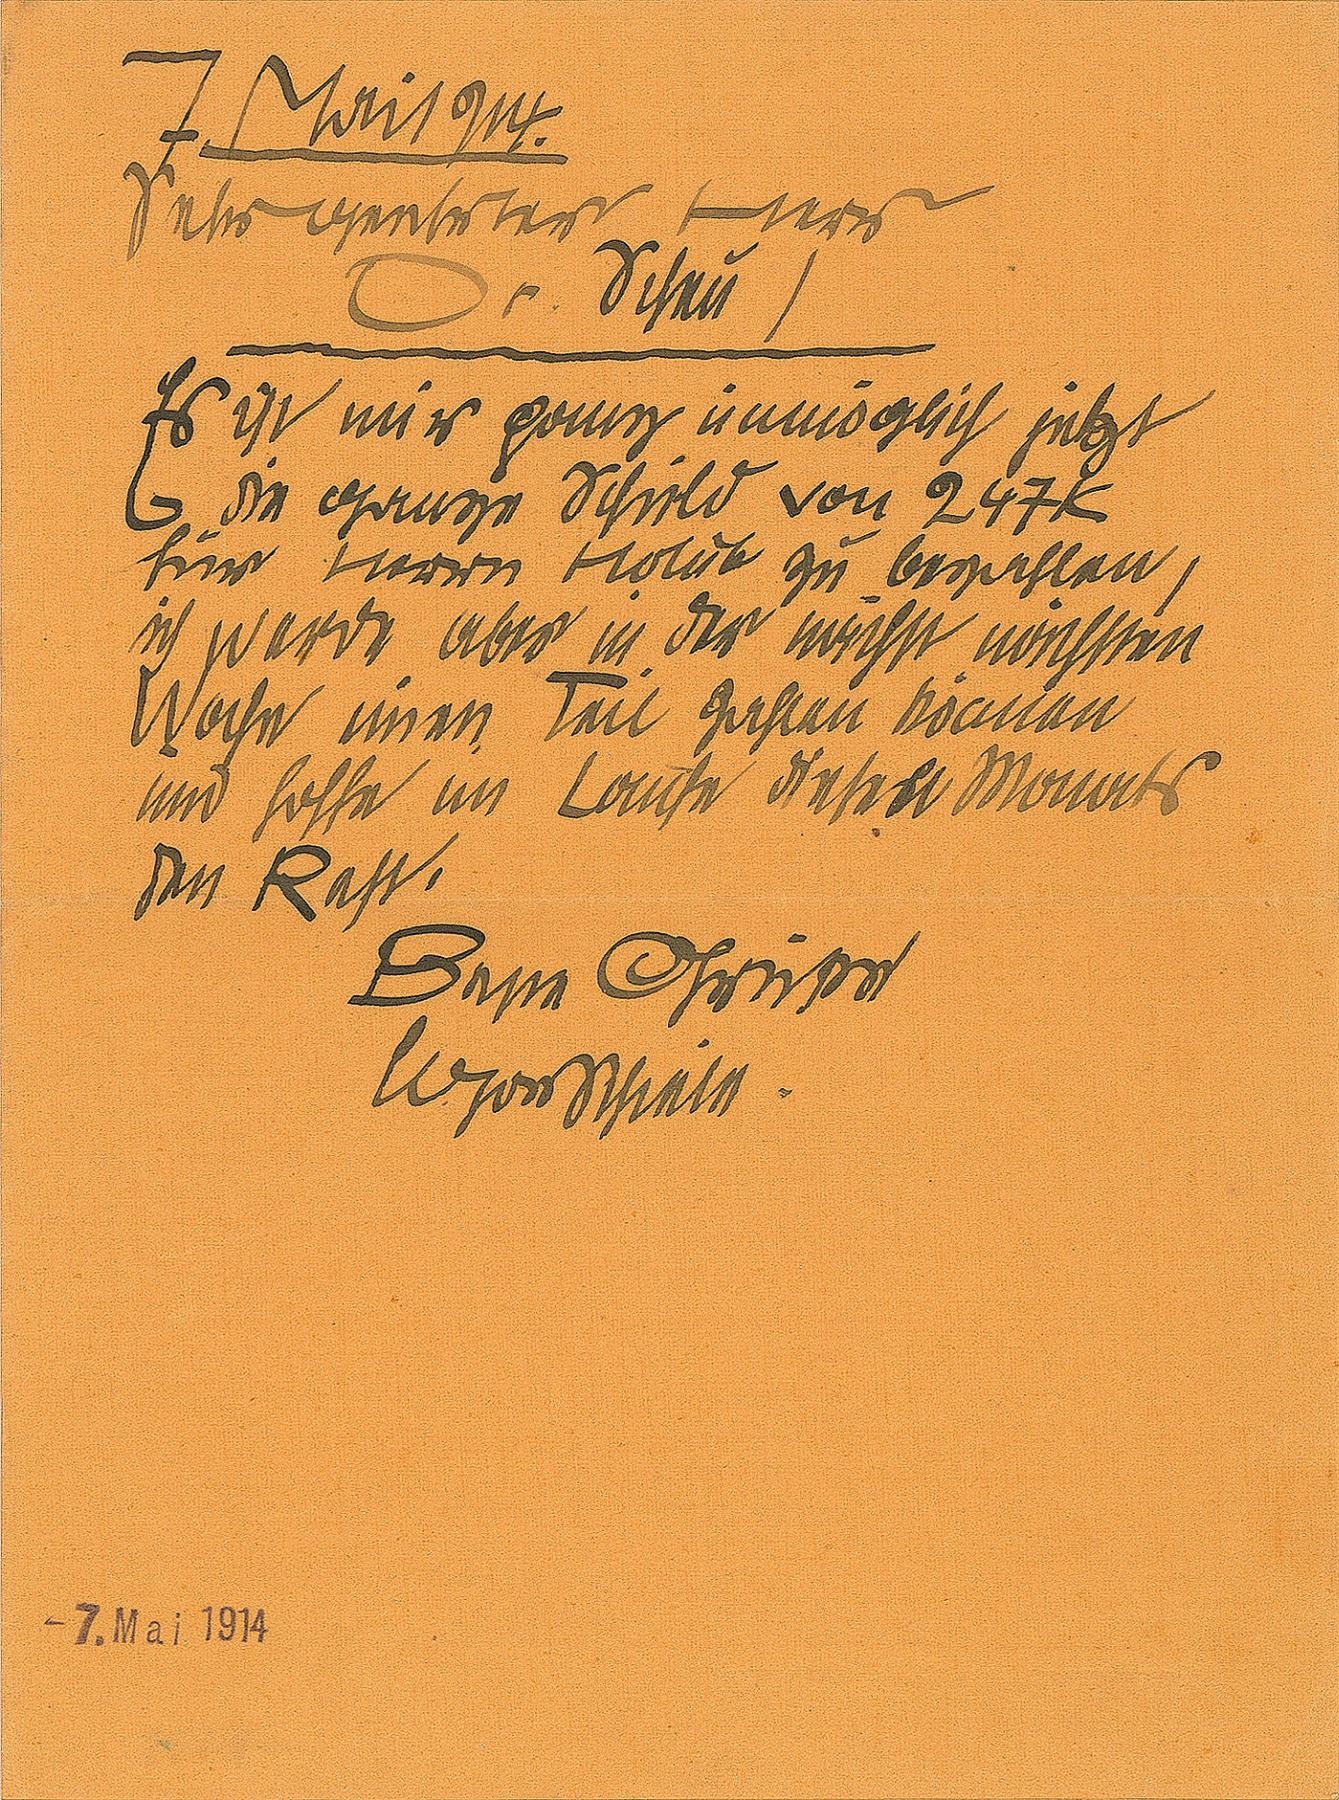 7. Mai 1914.
Sehr geehrter Herr
Dr. Scheu!
Es ist mir ganz unmöglich jetzt
die ganze Schuld von 247K
für Herrn Holub zu bezahlen,
ich werde aber in der nächst nächsten
Woche einen Teil zahlen können
und hoffe im Laufe dieses Monats
den Rest.
Beste Grüße
Egon Schiele.
-7. Mai 1914